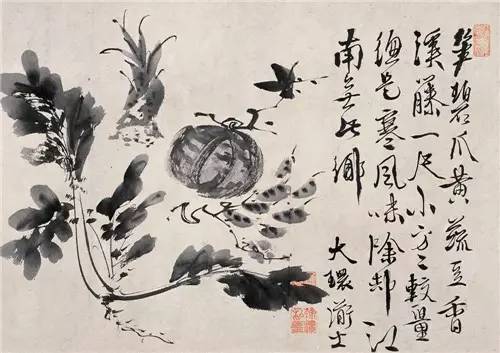 笋碧瓜黄蔬豆香
溪藤一尺小方々較量
總是寒風味除却江
南無此鄉
大環士